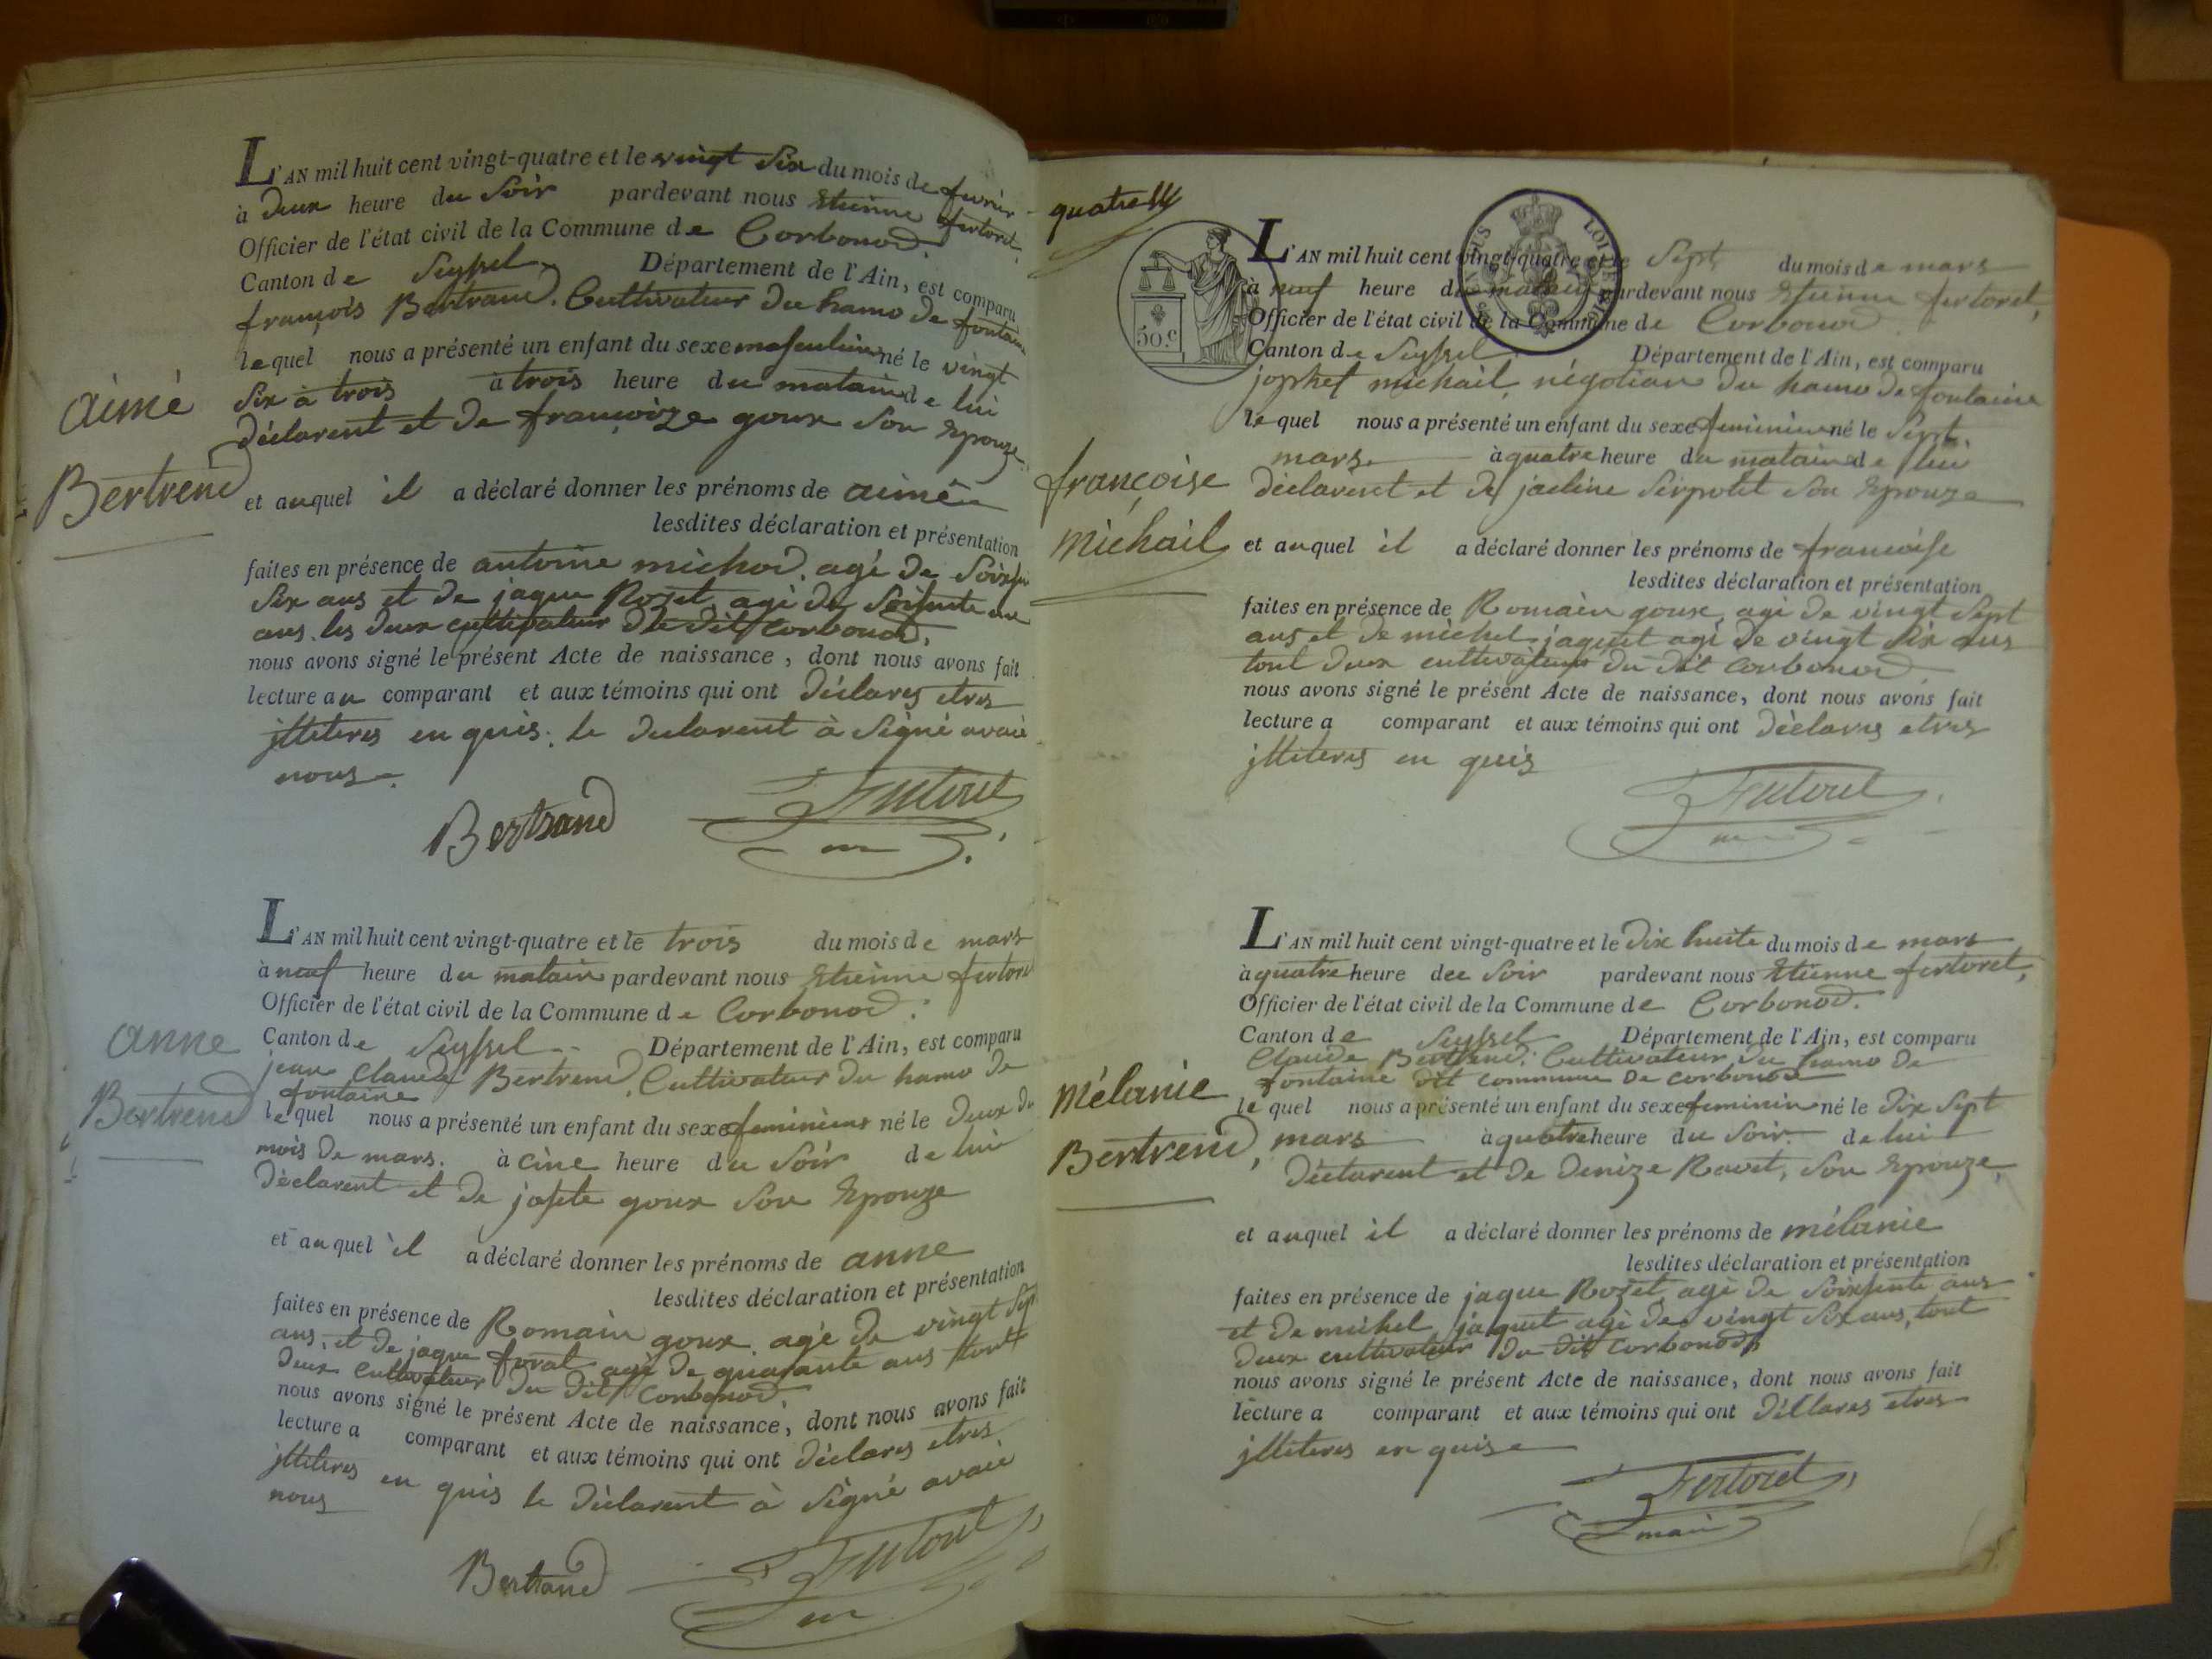 L'AN mil huit cent vingt-quatre et le vingt Six du mois de fevrier
à deux heure du Soir pardevant nous Etienne fertoret,
Officier de l'état civil de la Commune de Corbonod.
Canton de Seyssel Département de l'Ain, est comparu
françois Bertrand. Cultivateur du hamo de fontaine
lequel nous a présenté un enfant du sexe masculin né le vingt
Six à trois à trois heure du matain de lui
déclarent et de françoize goux Son Epouze
aimé
Bertrend
et auquel il a déclaré donner les prénoms de aimé
lesdites déclaration et présentation
faites en présence de antoine michod. agé de
Six ans et de jaque Rozet agé de Soisente
ans. les deux cultivateur du dit Corbonod.
nous avons signé le présent Acte de naissance, dont nous avons fait
lecture au comparant et aux témoins qui ont déclares etres
illiteres en quis. le declarent à Signé avaic
nous.
Bertrand Fertoret
L'AN mil huit cent vingt-quatre et le trois du mois de mars
à neuf heure du matain pardevant nous Etienne fertoret
Officier de l'état civil de la Commune de Corbonod.
Canton de Seyssel Département de l'Ain, est comparu
jean Claude Bertrend. Cultivateur du hamo de
fontaine
lequel nous a présenté un enfant du sexe feminiens né le deux du
mois de mars. à cinc heure du Soir de lui
déclarent et de josete goux Son Epouze
anne
Bertrend
et auquel il a déclaré donner les prénoms de anne
lesdites déclaration et présentation
faites en présence de Romain goux agé de vingt Sept
ans, et de jaque forat agé de quarante ans tout
deux Cultivateur du dit Corbonod.
nous avons signé le présent Acte de naissance, dont nous avons fait
lecture a comparant et aux témoins qui ont déclares etres
illiteres en quis le déclarent à Signé avaic
nous
Bertrand Fertoret
quatre
50.c
L'AN mil huit cent vingt-quatre et le Sept du mois de mars
à neuf heure du matain pardevant nous Etienne fertoret,
Officier de l'état civil de la Commune de Corbonod
Canton de Seyssel Département de l'Ain, est comparu
jophef michail négotian du hamo de fontaine
lequel nous a présenté un enfant du sexe feminiens né le Sept.
mars à quatre heure du matain de lui
déclarent et de jacline Serpolet Son Epouze
françoise
michail
et auquel il a déclaré donner les prénoms de francoise
lesdites déclaration et présentation
faites en présence de Romain goux agé de vingt Sept
ans et de michel jaquet agé de vingt Six ans
tout deux cultivateur du dit Corbonod
nous avons signé le présent Acte de naissance, dont nous avons fait
lecture a comparant et aux témoins qui ont déclares etres
illiteres en quis
Fertoret
L'AN mil huit cent vingt-quatre et le dix huite du mois de mars
à quatre heure du Soir pardevant nous Etienne fertoret,
Officier de l'état civil de la Commune de Corbonod.
Canton de Seyssel Département de l'Ain, est comparu
Claude Bertrend. Cultivateur du hamo de
fontaine dit commune de corbonod
lequel nous a présenté un enfant du sexe feminin né le dix Sept
mars à quatre heure du Soir. de lui
déclarent et de denize Ravet, Son Epouze,
mélanie
Bertrend,
et auquel il a déclaré donner les prénoms de mélanie
lesdites déclaration et présentation
faites en présence de jaque Rozet agé de Soixsente ans
et de michel jaquet agé de vingt Six ans, tout
deux cultivateur du dit Corbonod
nous avons signé le présent Acte de naissance, dont nous avons fait
lecture a comparant et aux témoins qui ont déllares etres
illiteres en quise
Fertoret
maire